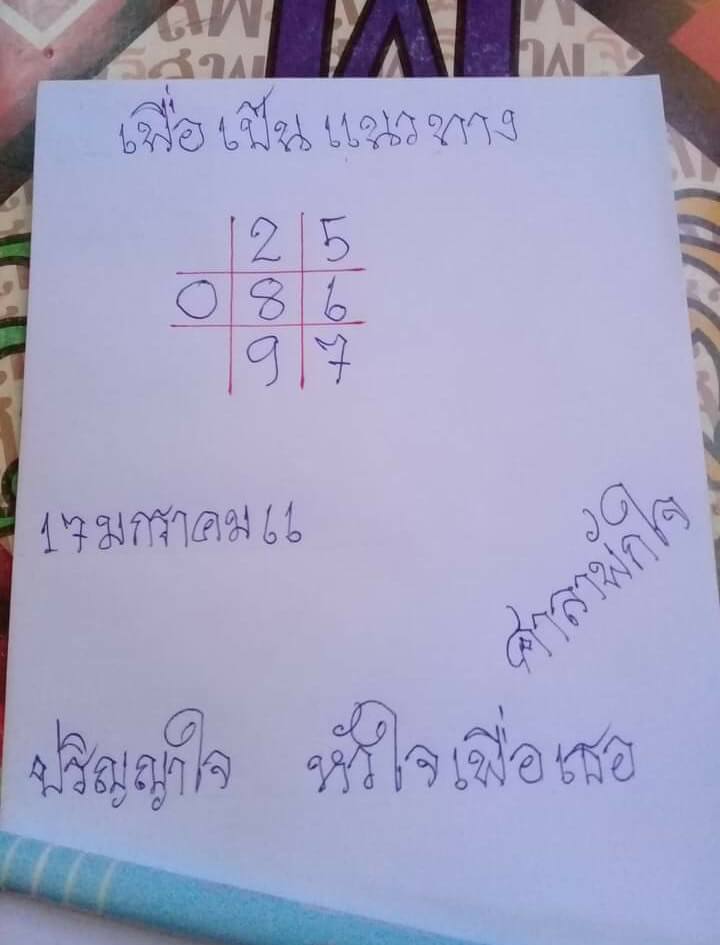 เพื่อเป็นแนวทาง
2 5
0 8 6
9 7
17 มกราคม 66
ศาลาพักใจ
ปริญญาใจ หัวใจเพื่อเธอ